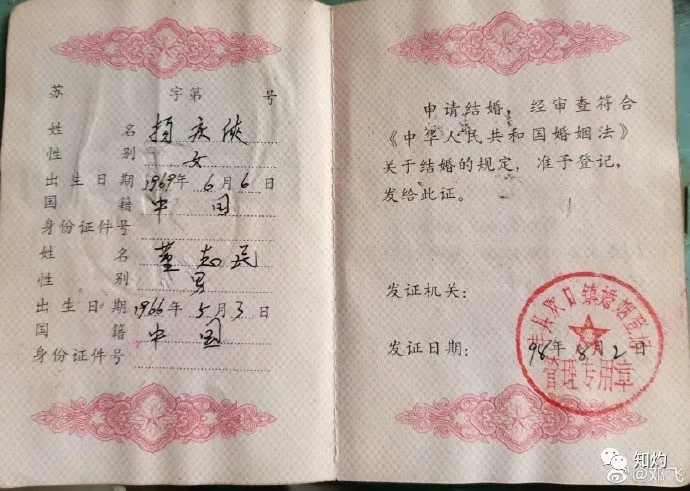 苏 字第 号
姓名 杨庆侠
性别 女
出生日期 1969年6月6日
国籍 中国
身份证件号
姓名 董志民
性别 男
出生日期 1966年5月3日
国籍 中国
身份证件号
申请结婚，经审查符合
《中华人民共和国婚姻法》
关于结婚的规定，准予登记，
发给此证。
发证机关：
发证日期： 98年8月2日
县欢口镇婚姻登记
管理专用章
知灼
@邓飞